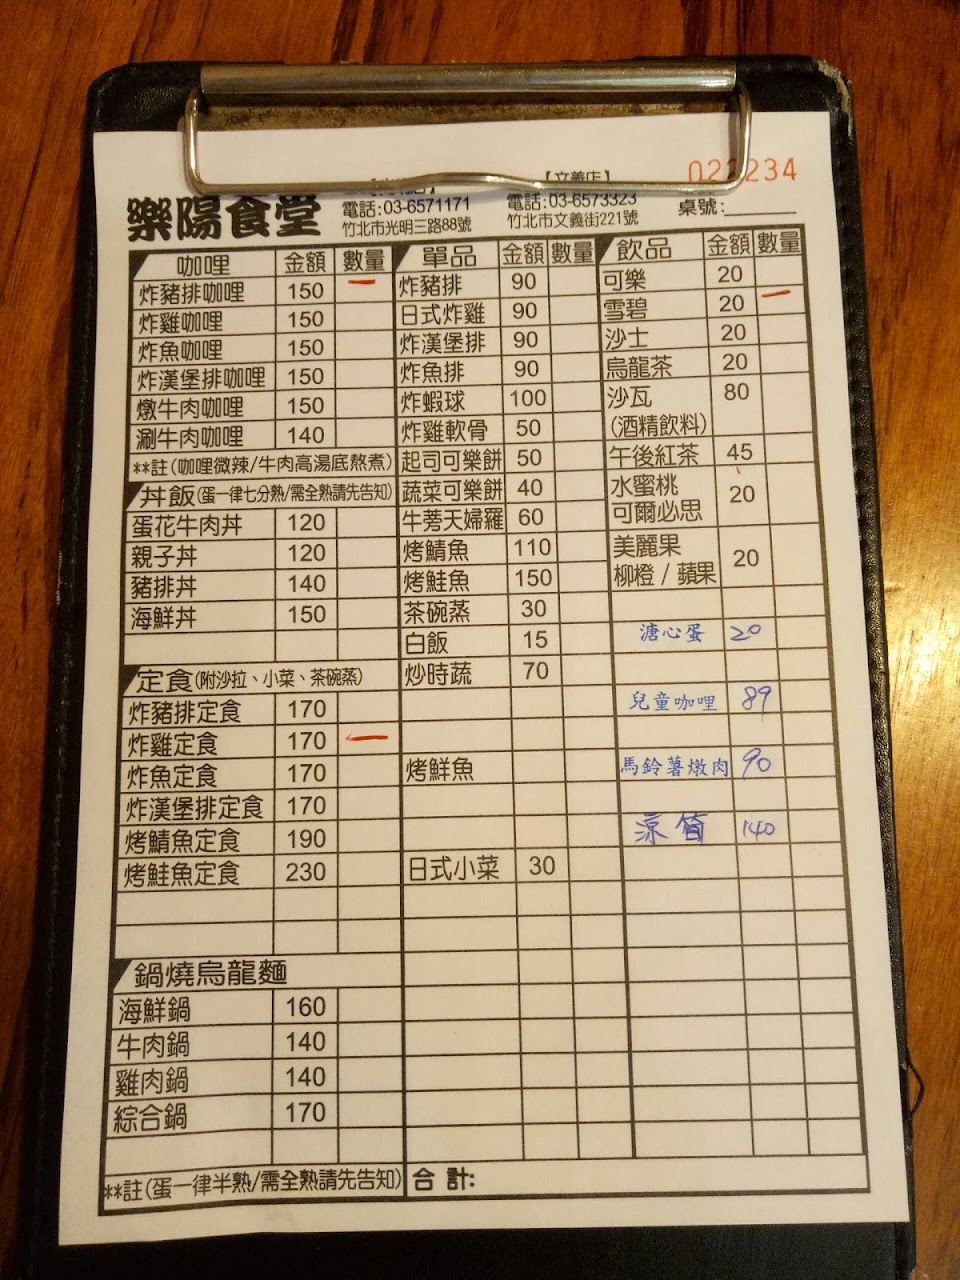 【文義店】
樂陽食堂
電話:03-6571171
竹北市光明三路88號
電話:03-6573323
竹北市文義街221號
桌號:
咖哩 金額 數量
炸豬排咖哩 150 一
炸雞咖哩 150
炸魚咖哩 150
炸漢堡排咖哩 150
燉牛肉咖哩 150
涮牛肉咖哩 140
**註(咖哩微辣/牛肉高湯底熬煮)
丼飯(蛋一律七分熟/需全熟請先告知)
蛋花牛肉丼 120
親子丼 120
豬排丼 140
海鮮丼 150
定食(附沙拉、小菜、茶碗蒸)
炸豬排定食 170
炸雞定食 170 一
炸魚定食 170
炸漢堡排定食 170
烤鯖魚定食 190
烤鮭魚定食 230
鍋燒烏龍麵
海鮮鍋 160
牛肉鍋 140
雞肉鍋 140
綜合鍋 170
**註(蛋一律半熟/需全熟請先告知)
單品 金額 數量
炸豬排 90
日式炸雞 90
炸漢堡排 90
炸魚排 90
炸蝦球 100
炸雞軟骨 50
起司可樂餅 50
蔬菜可樂餅 40
牛蒡天婦羅 60
烤鯖魚 110
烤鮭魚 150
茶碗蒸 30
白飯 15
炒時蔬 70
烤鮮魚
日式小菜 30
合計:
飲品 金額 數量
可樂 20
雪碧 20 一
沙士 20
烏龍茶 20
沙瓦 80
(酒精飲料)
午後紅茶 45
水蜜桃
可爾必思 20
美麗果
柳橙 / 蘋果 20
溏心蛋 20
兒童咖哩 89
馬鈴薯燉肉 90
140